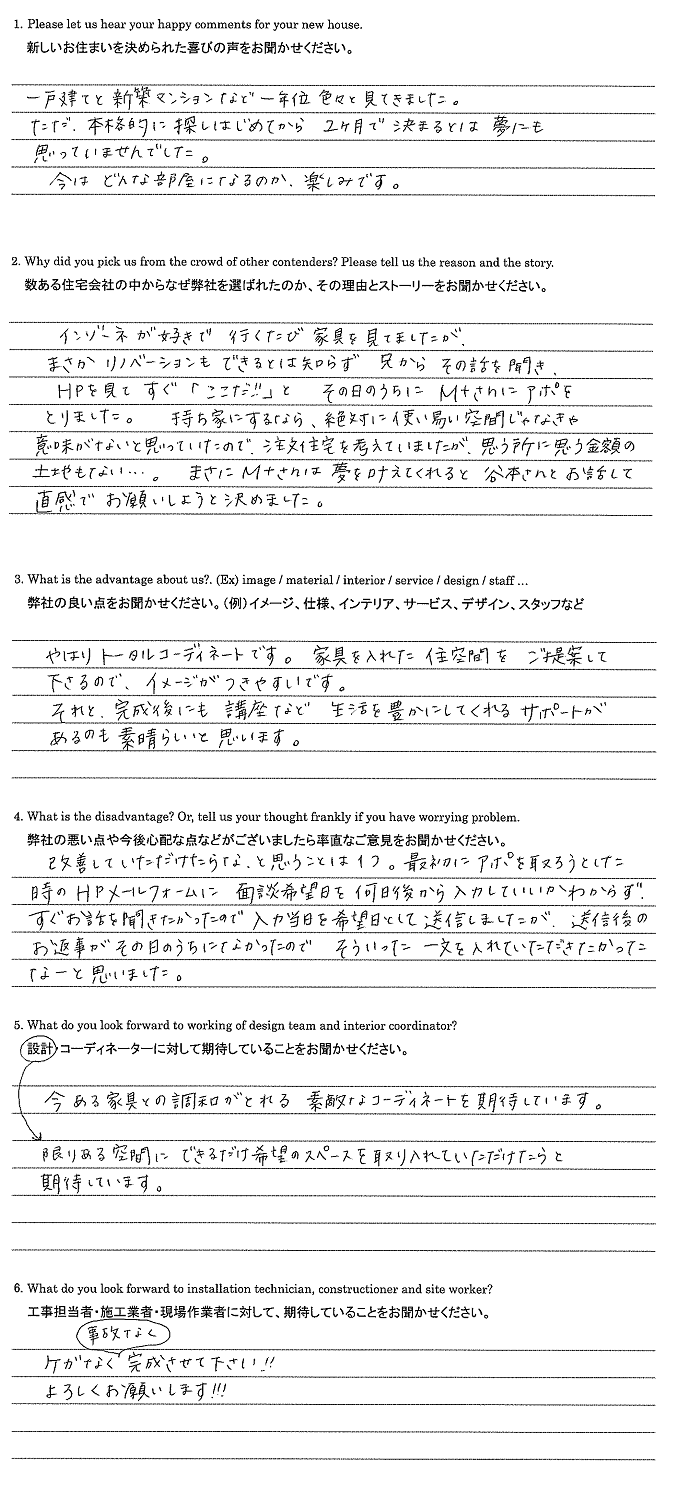 1. Please let us hear your happy comments for your new house.
新しいお住まいを決められた喜びの声をお聞かせください。
一戸建てと新築マンションなど一年位色々と見てきました。
ただ、本格的に探しはじめてから 2ヶ月で決まるとは夢にも
思っていませんでした。
今はどんな部屋になるのか、楽しみです。
2. Why did you pick us from the crowd of other contenders? Please tell us the reason and the story.
数ある住宅会社の中からなぜ弊社を選ばれたのか、その理由とストーリーをお聞かせください。
インゾーネが好きで 行くたび家具を見てましたが、
まさかリノベーションもできるとは知らず 兄からその話を聞き、
HPを見てすぐ「ここだ!!」と その日のうちにM+さんにアポを
とりました。 持ち家にするなら、絶対に使い易い空間じゃなきゃ
意味がないと思っていたので、注文住宅を考えていましたが、思う所に思う金額の
土地もない…。 まさにM+さんは夢を叶えてくれると谷本さんとお話して
直感でお願いしようと決めました。
3. What is the advantage about us?. (Ex) image / material / interior / service / design / staff ...
弊社の良い点をお聞かせください。(例)イメージ、仕様、インテリア、サービス、デザイン、スタッフなど
やはりトータルコーディネートです。 家具を入れた住空間をご提案して
下さるので、イメージがつきやすいです。
それと、完成後にも講座など 生活を豊かにしてくれるサポートが
あるのも素晴らいと思います。
4. What is the disadvantage? Or, tell us your thought frankly if you have worrying problem.
弊社の悪い点や今後心配な点などがございましたら率直なご意見をお聞かせください。
改善していただけたらな、と思うことは1つ。最初にアポを取ろうとした
時のHPメールフォームに 面談希望日を何日後から入力していいかわからず、
すぐお話を聞きたかったので入力当日を希望日として送信しましたが、送信後の
お返事がその日のうちになかったので そういった一文を入れていただきたかった
なーと思いました。
5. What do you look forward to working of design team and interior coordinator?
設計・コーディネーターに対して期待していることをお聞かせください。
今ある家具との調和がとれる 素敵なコーディネートを期待しています。
限りある空間に できるだけ希望のスペースを取り入れていただけたらと
期待しています。
6. What do you look forward to installation technician, constructioner and site worker?
工事担当者・施工業者・現場作業者に対して、期待していることをお聞かせください。
事故なく
ケガなく完成させて下さい!!
よろしくお願いします!!!